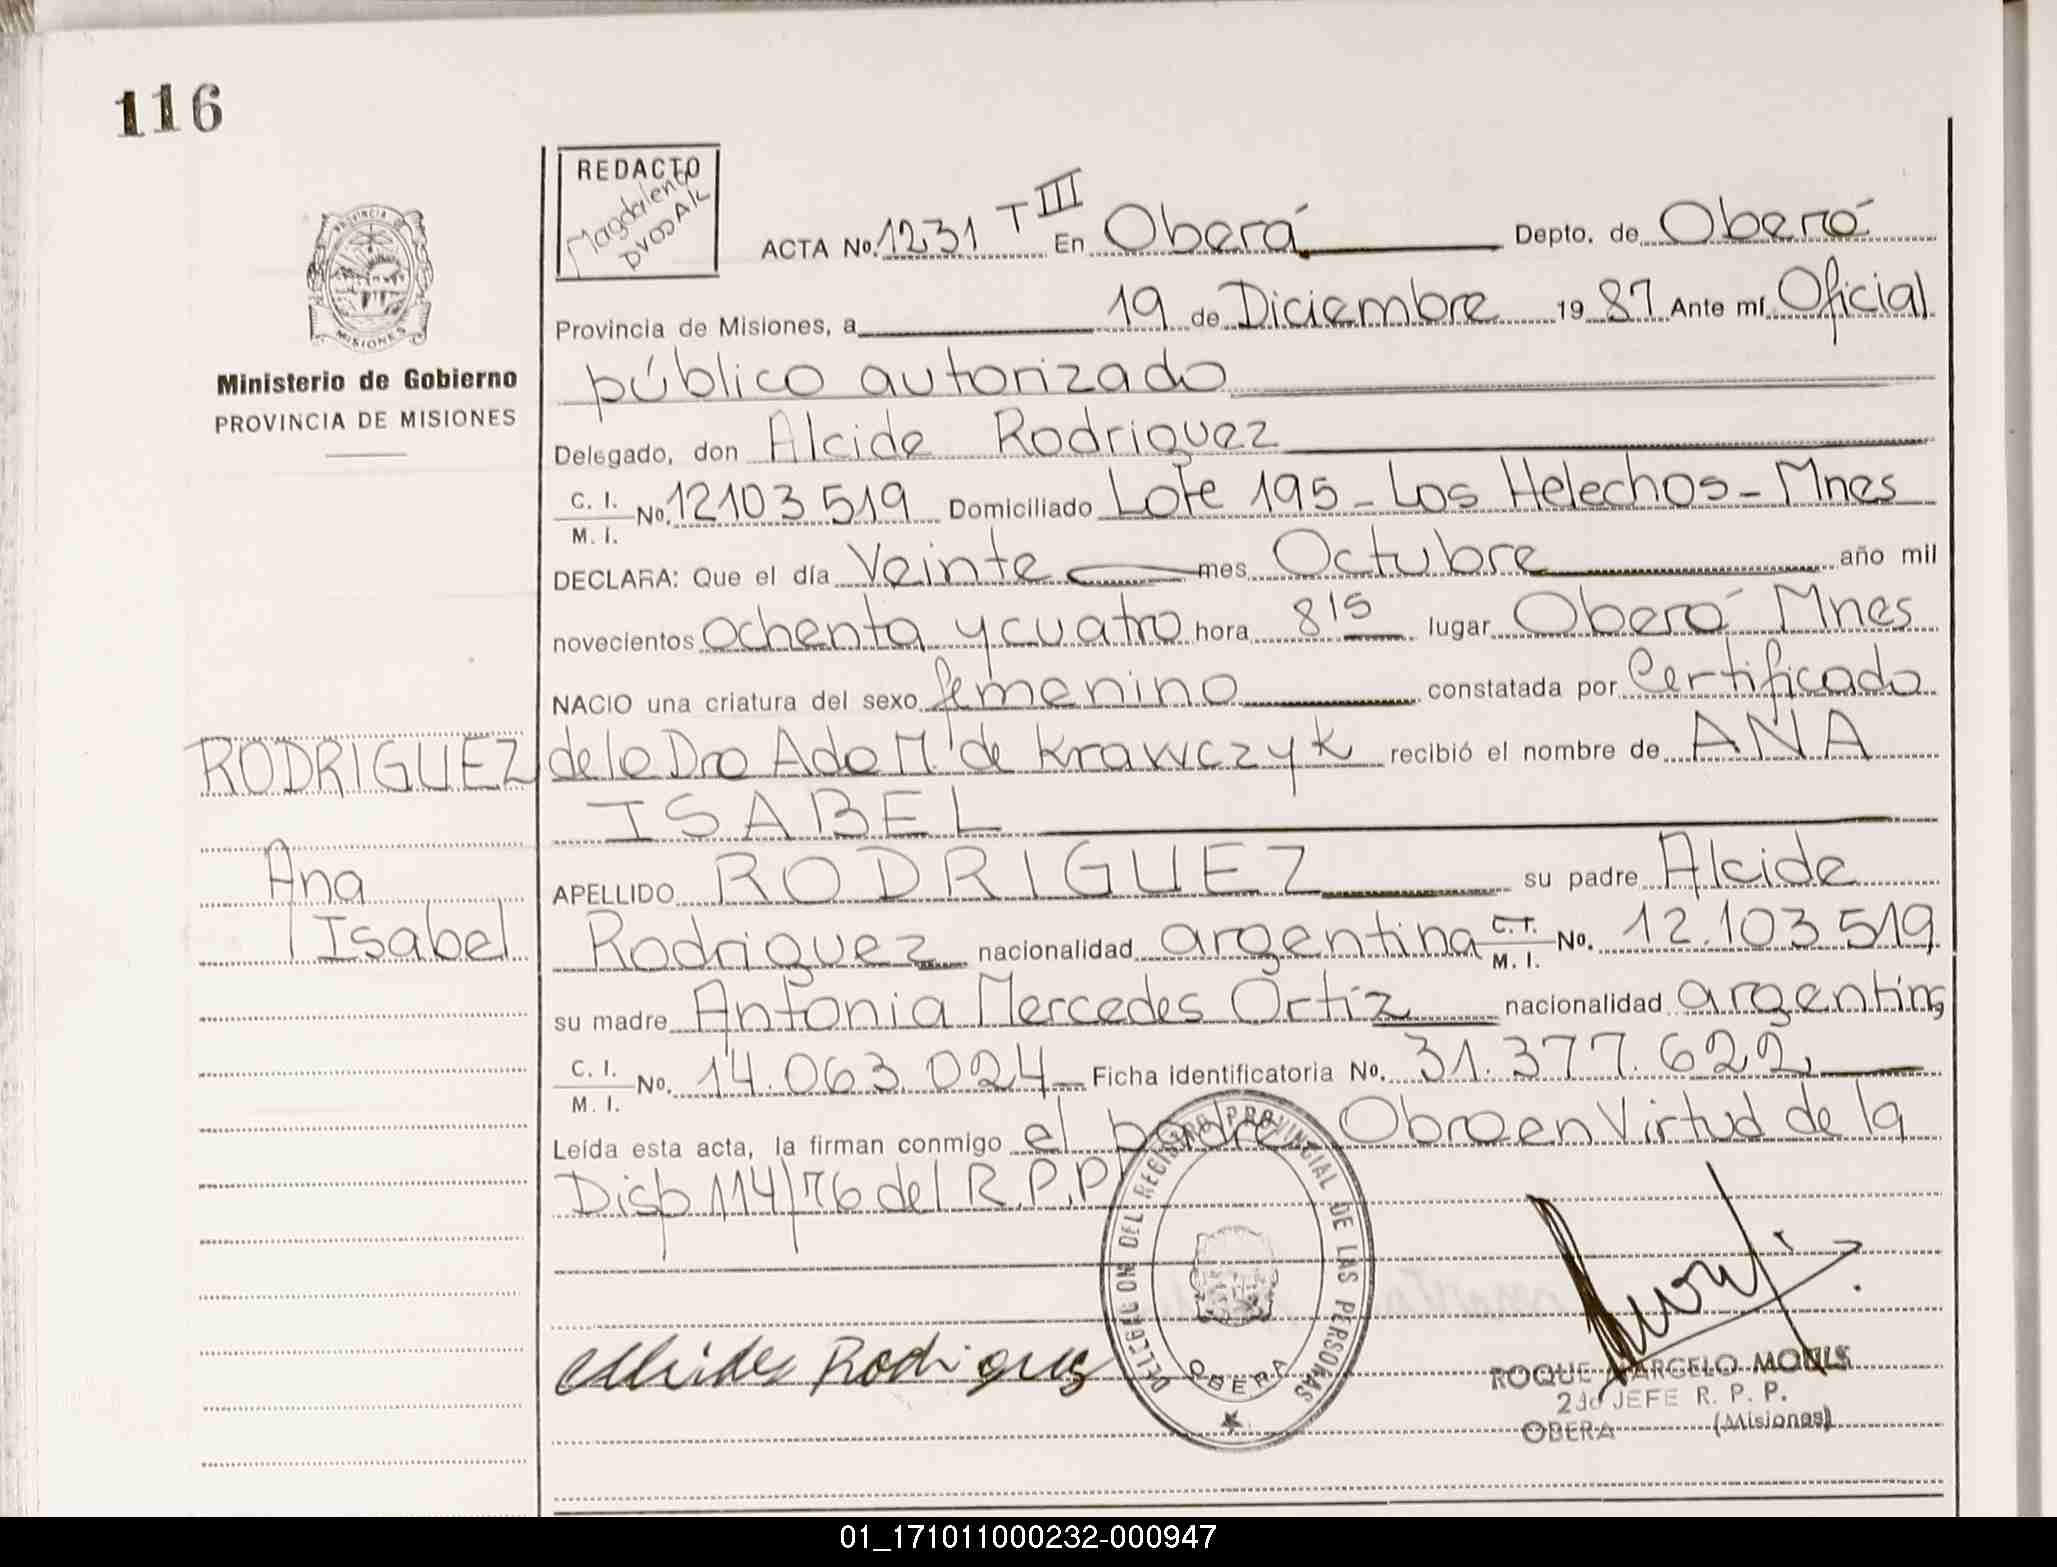 116
REDACTO
Magdalena
ACTA No. 1231 T III En Oberá Depto. de Oberá
Provincia de Misiones, a 19 de Diciembre 1987 Ante mí Oficial
público autorizado
Ministerio de Gobierno
PROVINCIA DE MISIONES
PROVINCIA DE
MISIONES
Delegado, don Alcide Rodriguez
C. I.
M. I. No. 12103519 Domiciliado Lote 195 - Los Helechos - Mnes
DECLARA: Que el día Veinte mes Octubre año mil
novecientos ochenta y cuatro hora 8 15 lugar Oberá Mnes
NACIO una criatura del sexo femenino constatada por Certificado
RODRIGUEZ
de la Dra Ada M. de Krawczyk recibió el nombre de ANA
ISABEL
Ana
Isabel
APELLIDO RODRIGUEZ su padre Alcide
Rodriguez nacionalidad argentina C. I.
M. I. No. 12.103519
su madre Antonia Mercedes Ortiz nacionalidad argentina
C. I.
M. I. No. 14.063.024 Ficha identificatoria No. 31.377.622
Leída esta acta, la firman conmigo el padre Obro en Virtud de la
Disp 114/76 del R.P.P
DELEGACION DEL REGISTRO PROVINCIAL DE LAS PERSONAS
OBERA
Alcides Rodriguez
ROQUE MARCELO
2do JEFE R. P. P.
OBERA (Misiones)
01_171011000232-000947